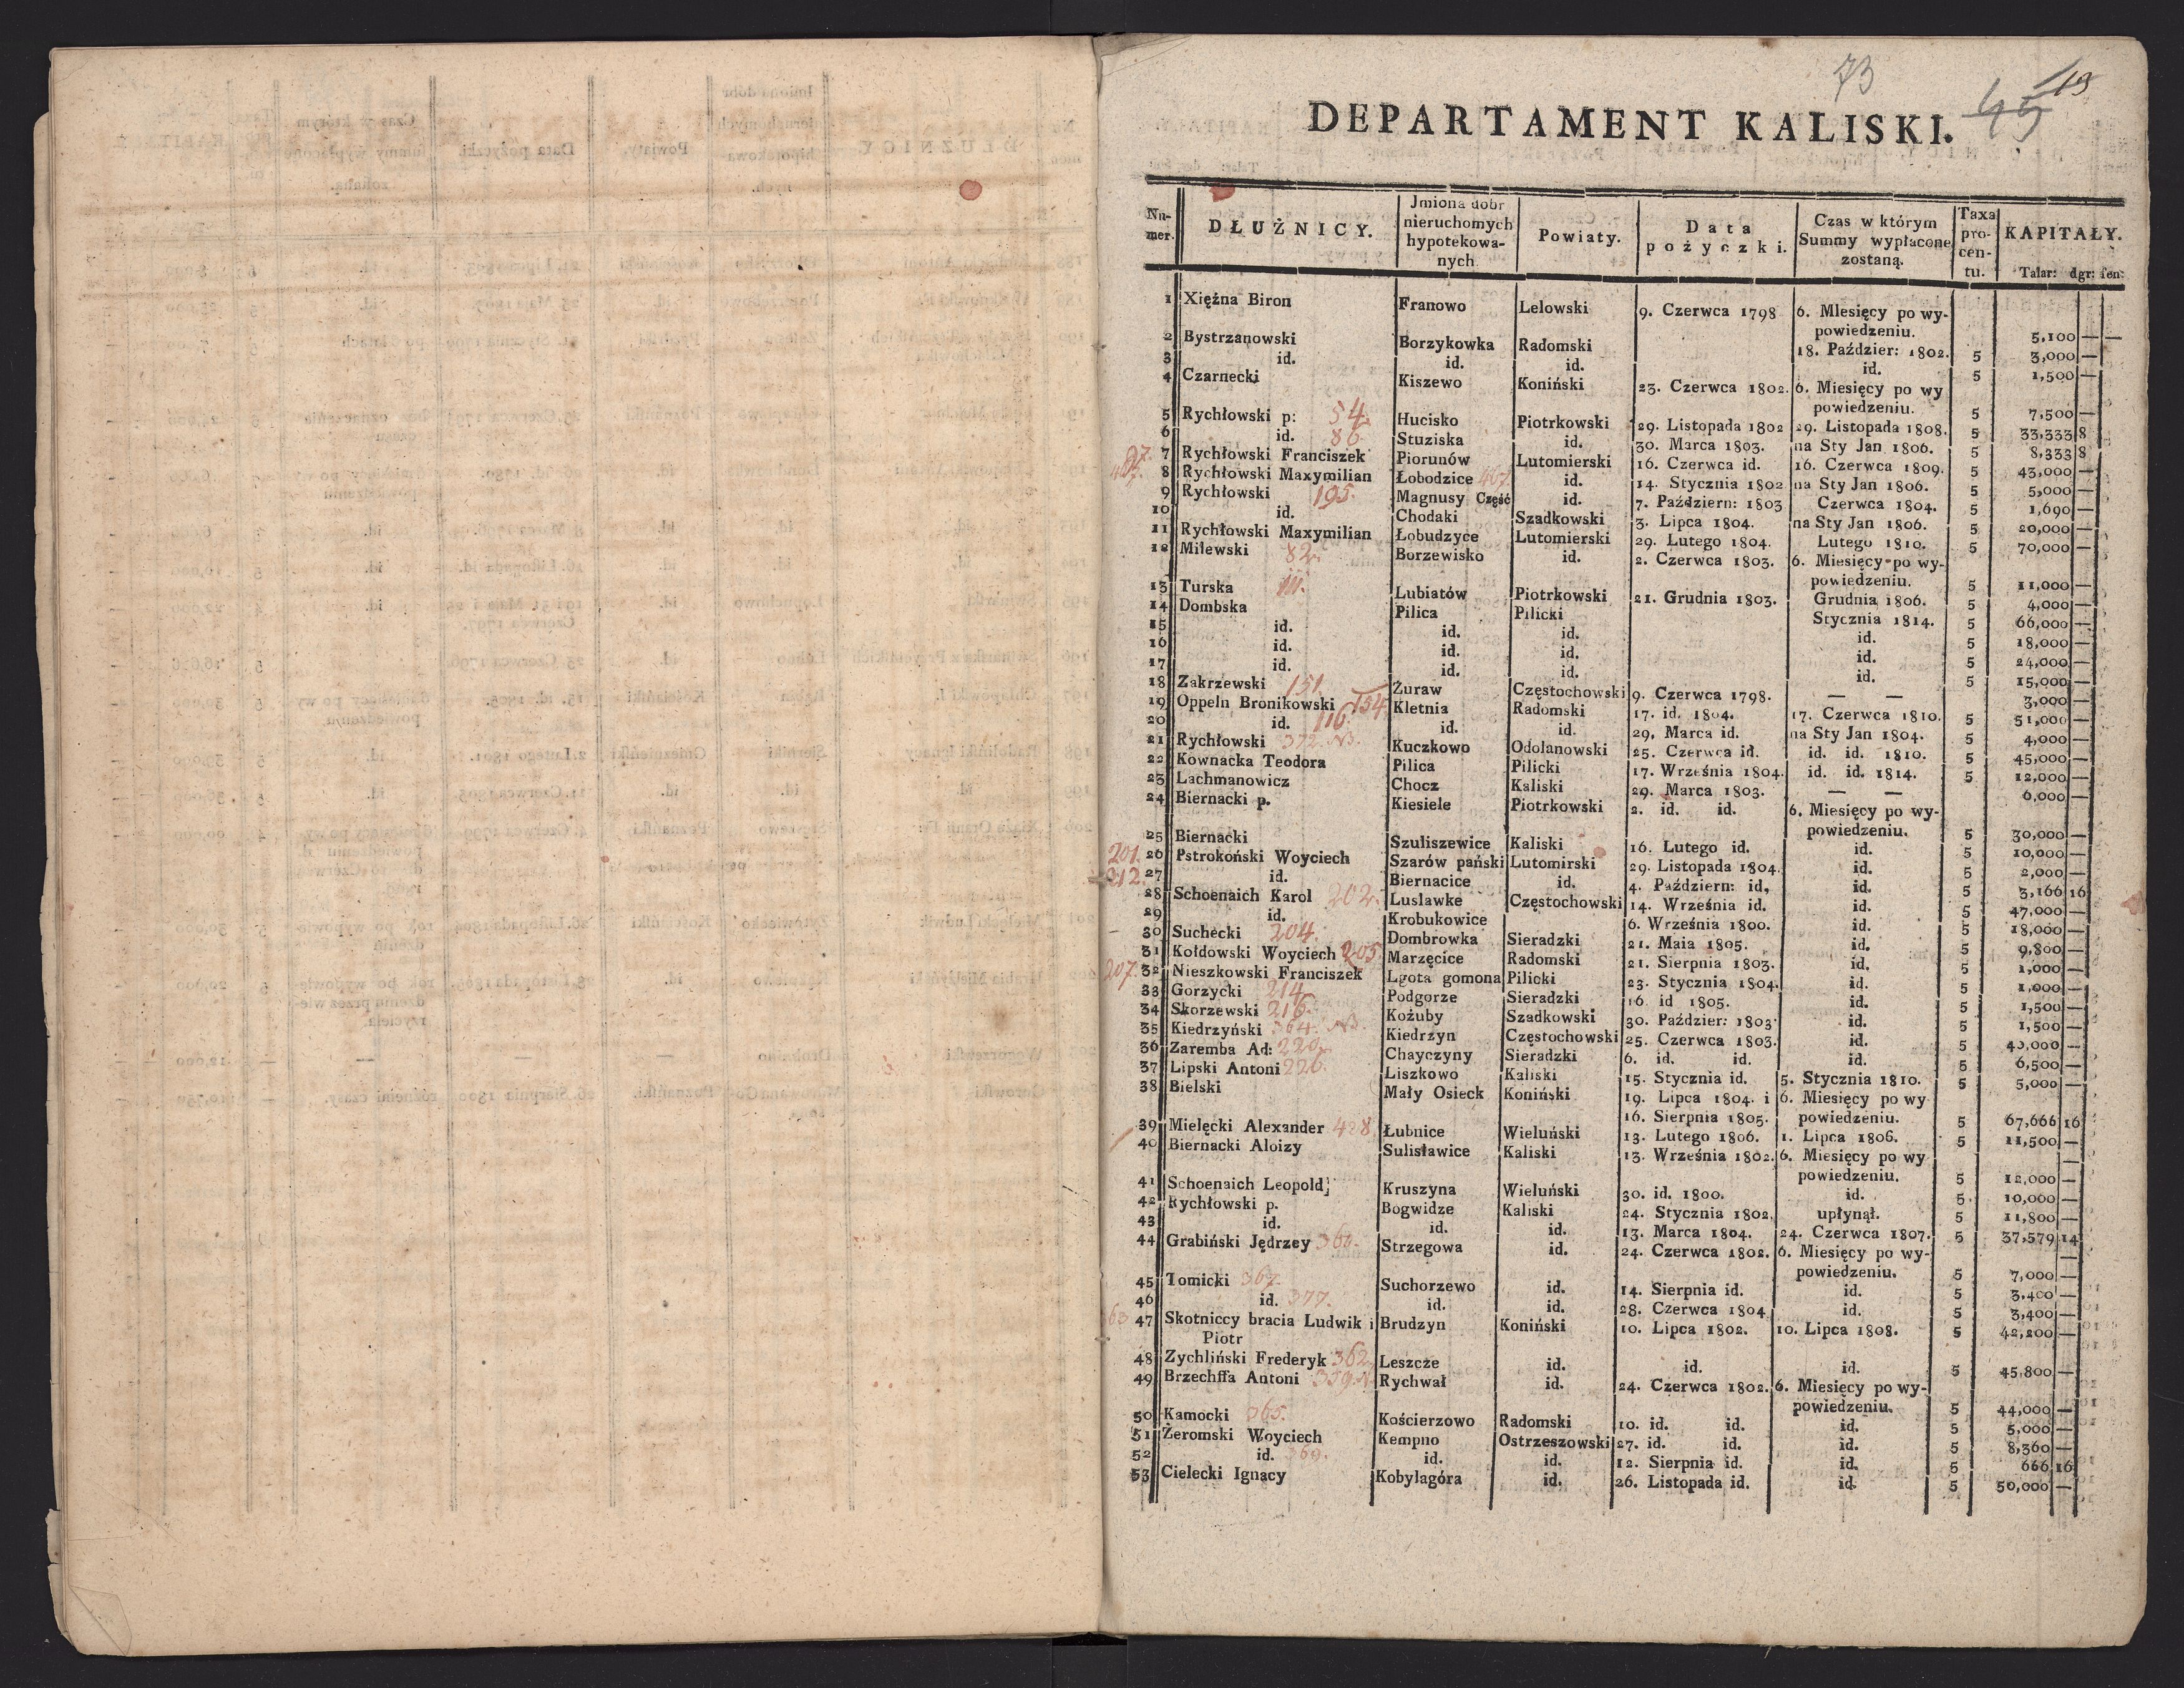 73
19
45
DEPARTAMENT KALISKI.
Nu-mer. DŁUŻNICY. Jmiona dobr nieruchomych hypotekowa-nych Powiaty. Data pożyczki. Czas w którym Summy wypłacone zostaną. Taxa pro-cen-tu. KAPITAŁY. Talar: dgr: fen:
1 Xiężna Biron Franowo Lelowski 9. Czerwca 1798 6. MIesięcy po wy-
powiedzeniu. 5,100 — —
2 Bystrzanowski Borzykowka Radomski 18. Paździer: 1802. 5 3,000 —
3 id. id. id. id. 5 1,500 —
4 Czarnecki Kiszewo Koniński 23. Czerwca 1802. 6. Miesięcy po wy
powiedzeniu. 5 7,500 —
5 Rychłowski p: 54. Hucisko Piotrkowski 29. Listopada 1802 29. Listopada 1808. 5 33,333 8
6 id. 86. Stuziska id. 30. Marca 1803. na Sty Jan 1806. 5 8,333 8
7 Rychłowski Franciszek Piorunów Lutomierski 16. Czerwca id. 16. Czerwca 1809. 5 43,000 —
8 Rychłowski Maxymilian Łobodzice 407. id. 14. Stycznia 1802 na Sty Jan 1806. 5 5,000 —
9 Rychłowski 195. Magnusy Część id. 7. Październ: 1803 Czerwca 1804. 5 1,690 —
10 id. Chodaki Szadkowski 3. Lipca 1804. na Sty Jan 1806. 5 20,000 —
11 Rychłowski Maxymilian Łobudzyce Lutomierski 29. Lutego 1804. Lutego 1810. 5 70,000 —
12 Milewski 82. Borzewisko id. 2. Czerwca 1803. 6. Miesięcy po wy-
powiedzeniu. 5 11,000 —
13 Turska 111. Lubiatów Piotrkowski 21. Grudnia 1803. Grudnia 1806. 5 4,000 —
14 Dombska Pilica Pilicki Stycznia 1814. 5 66,000 —
15 id. id. id. id. 5 18,000 —
16 id. id. id. id. 5 24,000 —
17 id. id. id. id. 5 15,000 —
18 Zakrzewski 151. Żuraw Częstochowski 9. Czerwca 1798. — — 3,000 —
19 Oppeln Bronikowski 154. Kletnia Radomski 17. id. 1804. 17. Czerwca 1810. 5 51,000 —
20 id. 116. id. id. 29, Marca id. na Sty Jan 1804. 5 4,000 —
21 Rychłowski 372. NB. Kuczkowo Odolanowski 25. Czerwca id. id. id. 1810. 5 45,000 —
22 Kownacka Teodora Pilica Pilicki 17. Września 1804. id. id. 1814. 5 12,000 —
23 Lachmanowicz Chocz Kaliski 29. Marca 1803. — — 6,000 —
24 Biernacki p. Kiesiele Piotrkowski 2. id. id. 6. Miesięcy po wy-
powiedzeniu. 5 30,000 —
25 Biernacki Szuliszewice Kaliski 16. Lutego id. id. 5 10,000 —
201. 26 Pstrokoński Woyciech Szarów pański Lutomirski 29. Listopada 1804. id. 5 2,000 —
212. 27 id. Biernacice id. 4. Październ: id, id. 5 3,166 16
28 Schoenaich Karol 202. Luslawke Częstochowski 14. Września id. id. 5 47,000 —
29 id. Krobukowice 6. Września 1800. id. 5 18,000 —
30 Suchecki 204. Dombrowka Sieradzki 21. Maia 1805. id. 5 9,800 —
31 Kołdowski Woyciech 205. Marzęcice Radomski 21. Sierpnia 1803. id. 5 1,000 —
207. 32 Nieszkowski Franciszek Lgota gomona Pilicki 23. Stycznia 1804. id. 5 1,000 —
33 Gorzycki 214. Podgorze Sieradzki 16. id 1805. id. 5 1,500 —
34 Skorzewski 216. Kożuby Szadkowski 30. Paździer: 1803. id. 5 1,500 —
35 Kiedrzyński 364. NB. Kiedrzyn Częstochowski 25. Czerwca 1803. id. 5 40,000 —
36 Zaremba Ad: 220. Chayczyny Sieradzki 6. id. id. id. 5 6,500 —
37 Lipski Antoni 226. Liszkowo Kaliski 15. Stycznia id. 5. Stycznia 1810. 5 5,000 —
38 Bielski Mały Osieck Koniński 19. Lipca 1804. i 6. Miesięcy po wy
16. Sierpnia 1805. powiedzeniu. 5 67,666 16
39 Mielęcki Alexander 428. Łubnice Wieluński 13. Lutego 1806. 1. Lipca 1806. 5 11,500 —
40 Biernacki Aloizy Sulisławice Kaliski 13. Września 1802. 6. Miesięcy po wy
powiedzeniu. 5 12,000 —
41 Schoenaich Leopold Kruszyna Wieluński 30. id. 1800. id. 5. 10,000 —
42 Rychłowski p. Bogwidze Kaliski 24. Stycznia 1802. upłynął. 5 11,800 —
43 id. id. id. 13. Marca 1804. 24. Czerwca 1807. 5 37,579 14
44 Grabiński Jędrzey 360. Strzegowa id. 24. Czerwca 1802. 6. Miesięcy po wy-
powiedzeniu. 5 7,000 —
45 Tomicki 367. Suchorzewo id. 14. Sierpnia id. id. 5 3,400 —
46 id. 377. id. id. 28. Czerwca 1804 id. 5 3,400 —
47 Skotniccy bracia Ludwik i Brudzyn Koniński 10. Lipca 1802. 10. Lipca 1808. 5 42,200 —
Piotr
48 Zychliński Frederyk 362. Leszcze id. id. id. 5 45,800 —
49 Brzechffa Antoni Rychwał id. 24. Czerwca 1802. 6. Miesięcy po wy-
powiedzeniu. 5 44,000 —
50 Kamocki 365. Kościerzowo Radomski 10. id. id. id. 5 5,000 —
51 Żeromski Woyciech Kempno Ostrzeszowski 27. id. id. id. 5 8,360 —
52 id. 369. id. id. 12. Sierpnia id. id. 5 666 16
53 Cielecki Ignacy Kobylagóra id. 26. Listopada id. id. 5 50,000 —